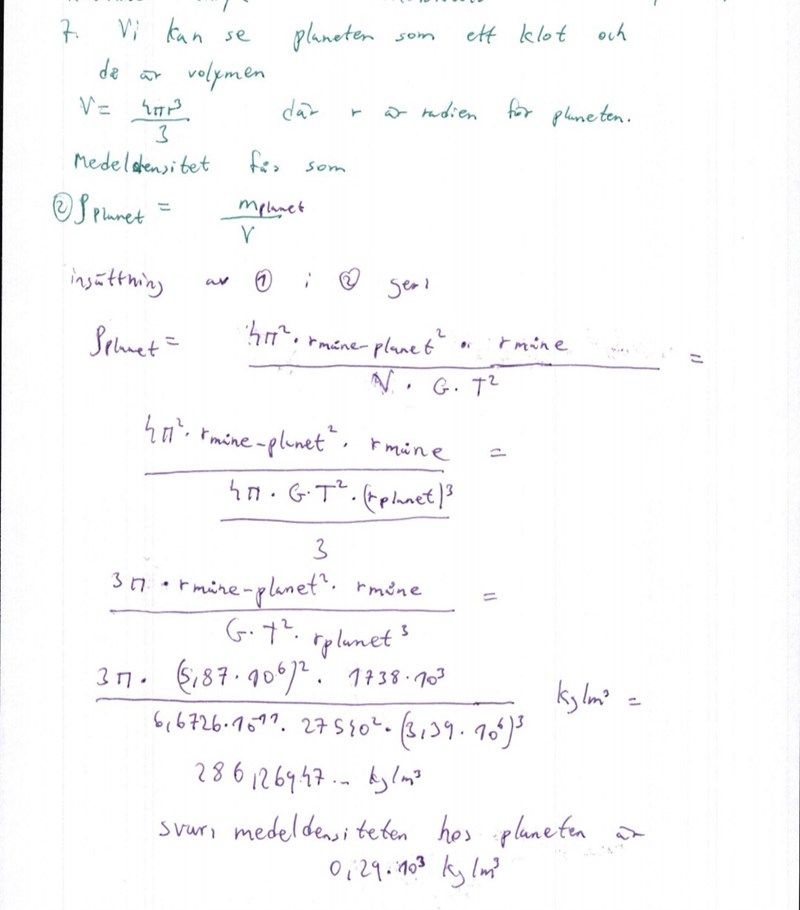 7. Vi kan se planeten som ett klot och
de är volymen
V= 4πr³/3 där r är radien för planeten.
Medeldensitet fås som
② ρplanet = mplanet/V
insättning av ① i ② ger:
ρplanet = 4π² · rmåne-planet² · rmåne / V · G · T² =
4π² · rmåne-planet² · rmåne / (4π · G · T² · (rplanet)³ / 3) =
3π · rmåne-planet² · rmåne / G · T² · rplanet³ =
3π · (5,87 · 10⁶)² · 1738 · 10³ / 6,6726 · 10⁻¹¹ · 27540² · (3,39 · 10⁶)³ kg/m³ =
286,26947... kg/m³
svar: medeldensiteten hos planeten är
0,29 · 10³ kg/m³